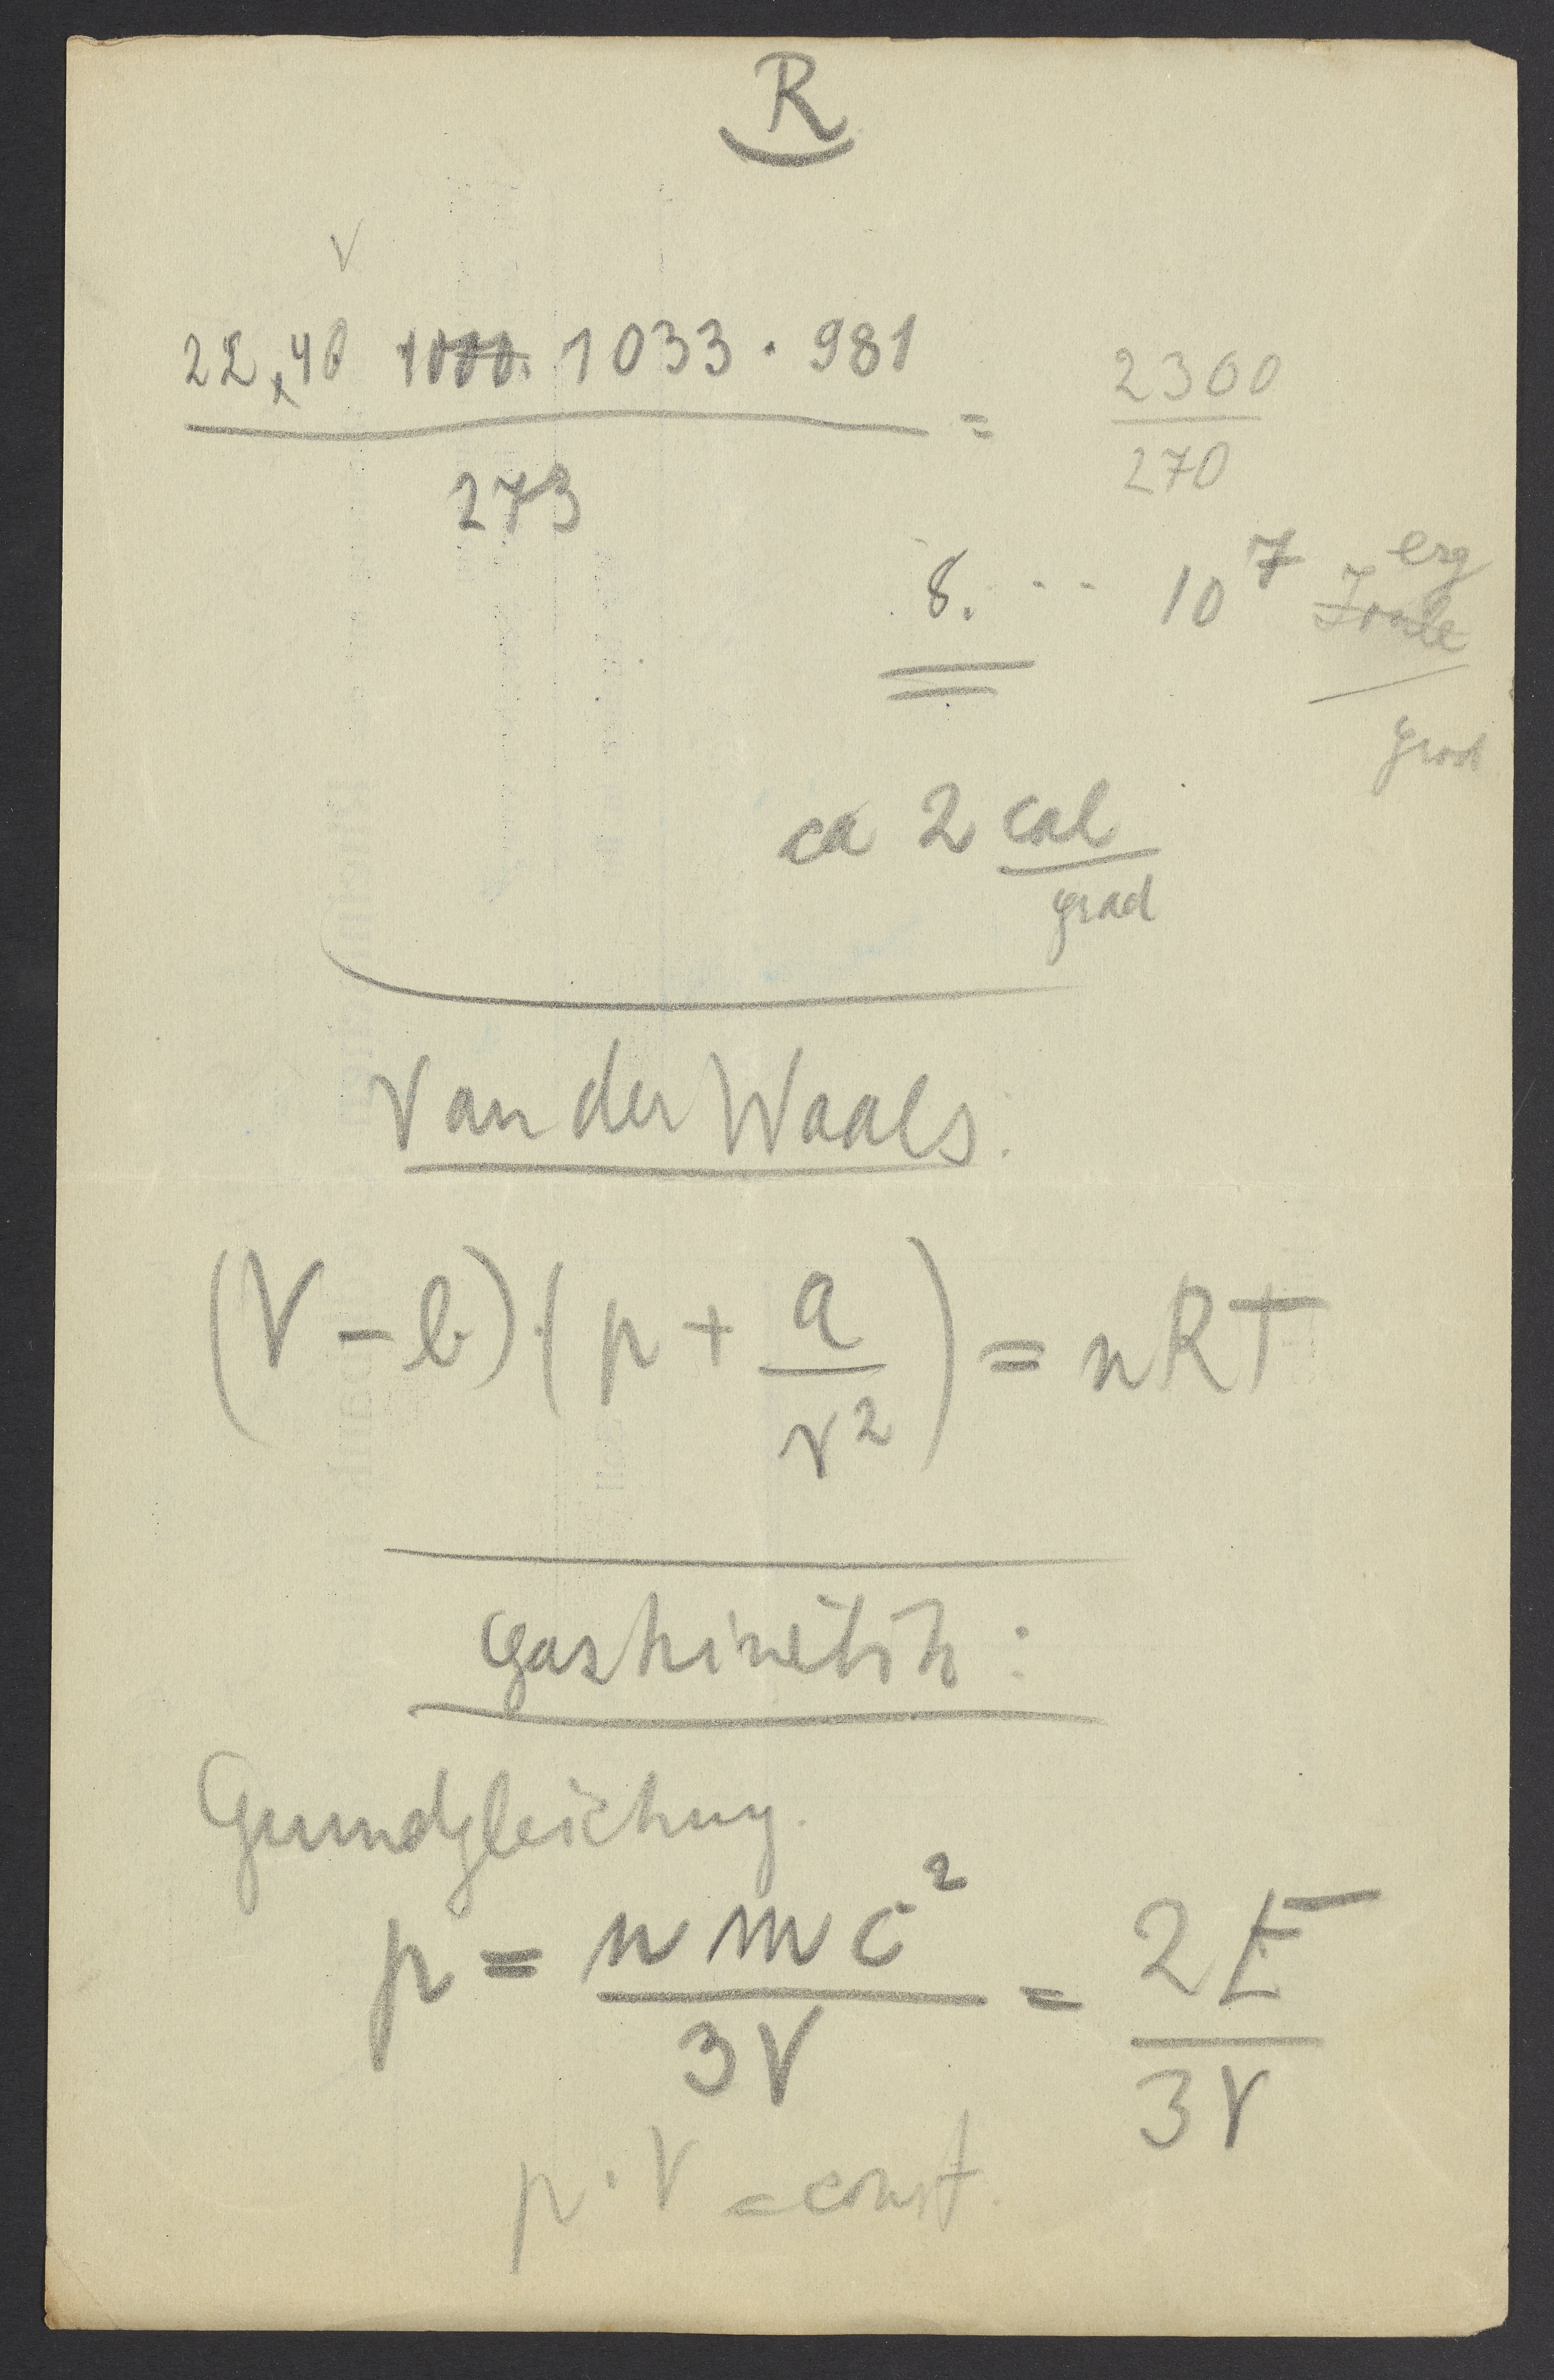 R
V
22,40 1000. 1033 · 981 / 273 = 2300 / 270
8. ... 10⁷ erg Joule / grad
ca 2 cal / grad
Van der Waals:
(V - b) · (p + a / v²) = nRT
Gaskinetik:
Grundgleichung.
p = n m c² / 3V = 2E / 3V
p · V = const.